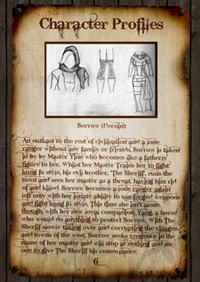 Character Profiles
Sorrow (Heroin):
An outkast to the rest of civilisation and a lone
ranger without any family or friends, Sorrow is taken
in by by Master Yinn who becomes like a fatherly
figure to her. Whilst her Master Trains her to fight
kung fu style, his evil brother, The Sheriff, runs the
town and sees her master as a threat, having him rid
of and killed. Sorrow becomes a lone ranger again
left only with her innate ability to use forged weapons
and fight kung fu style. This time she isn't alone
though, with her new loyal companion, Yang, a horse
who would do anything to protect Sorrow. With The
Sheriff slowly taking over and corrupting the villages
and towns of the west, Sorrow seeks vengence in the
name of her master and will stop at nothing and no
one to give The Sheriff his comeupance.
6